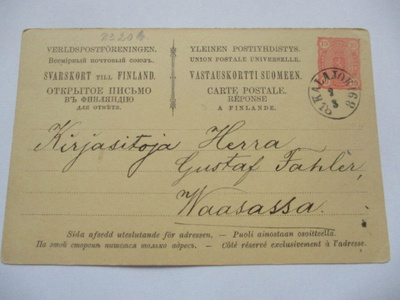 VERLDSPOSTFÖRENINGEN.
Всемірный почтовый союзъ.
SVARSKORT TILL FINLAND.
ОТКРЫТОЕ ПИСЬМО
ВЪ ФИНЛЯНДІЮ
ДЛЯ ОТВѢТА.
YLEINEN POSTIYHDISTYS.
UNION POSTALE UNIVERSELLE.
VASTAUSKORTTI SUOMEEN.
CARTE POSTALE.
RÉPONSE
A FINLANDE.
KALAJOKI
Kirjasitoja Herra
Gustaf Fahler,
Waasassa.
Sida afsedd uteslutande för adressen. - Puoli ainostaan osoitteella.
На этой сторонѣ пишется только адресъ. - Côté réservé exclusivement à l'adresse.